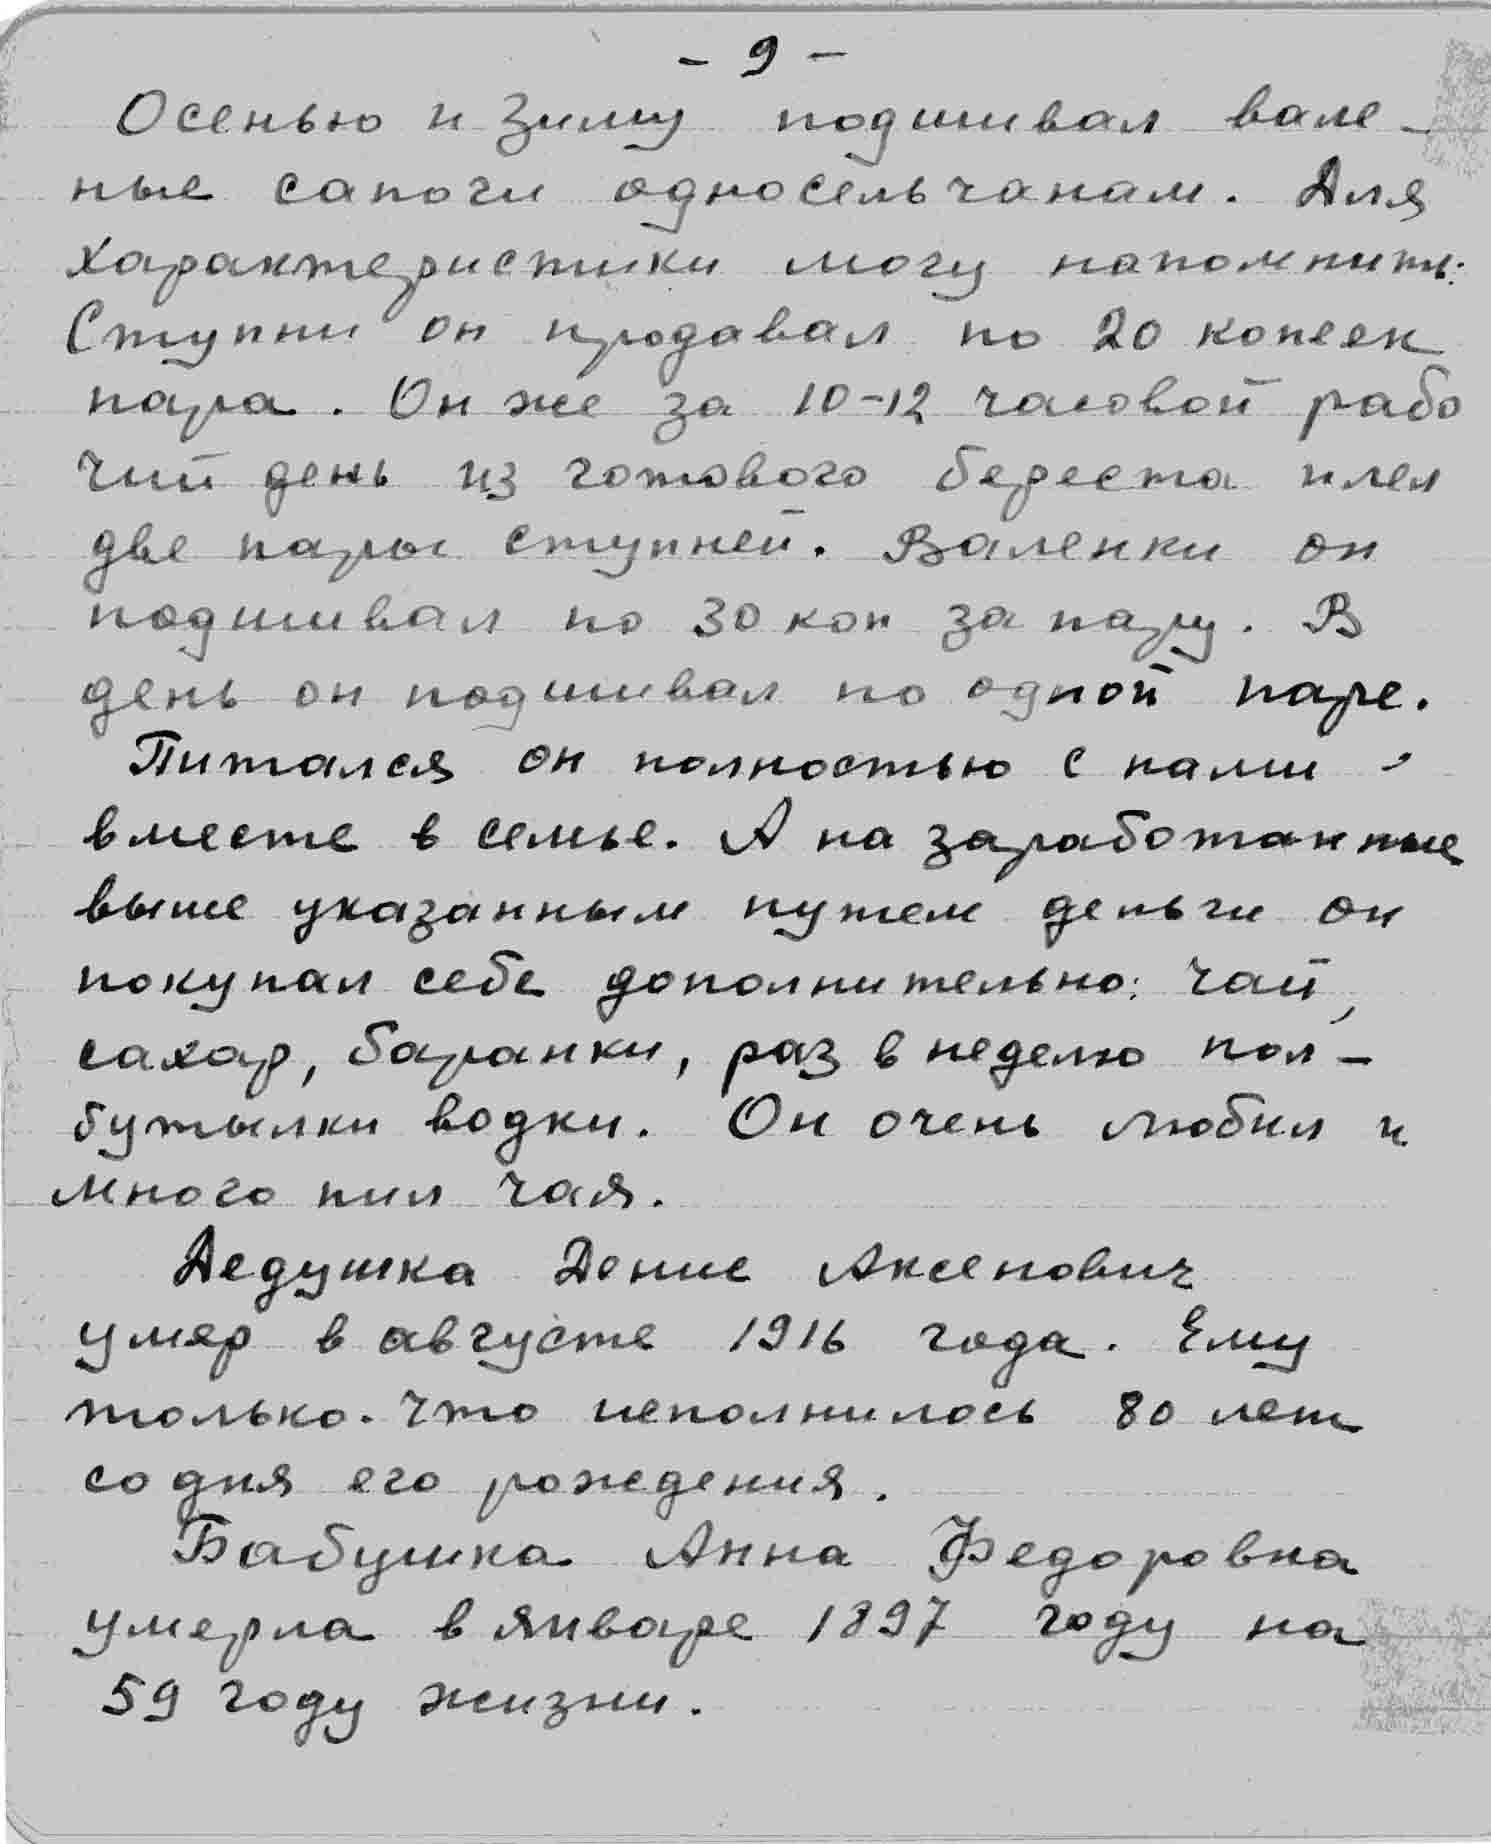 - 9 -
Осенью и зиму подшивал вале-
ные сапоги односельчанам. Для
характеристики могу напомнить:
Ступни он продавал по 20 копеек
пара. Он же за 10-12 часовой рабо
чий день из готового береста плел
две пары ступней. Валенки он
подшивал по 30 коп за пару. В
день он подшивал по одной паре.
Питался он полностью с нами
вместе в семье. А на заработанные
выше указанным путем деньги он
покупал себе дополнительно: чай,
сахар, баранки, раз в неделю пол-
бутылки водки. Он очень любил и
много пил чая.
Дедушка Денис Аксенович
умер в августе 1916 года. Ему
только что исполнилось 80 лет
со дня его рождения.
Бабушка Анна Федоровна
умерла в январе 1897 году на
59 году жизни.